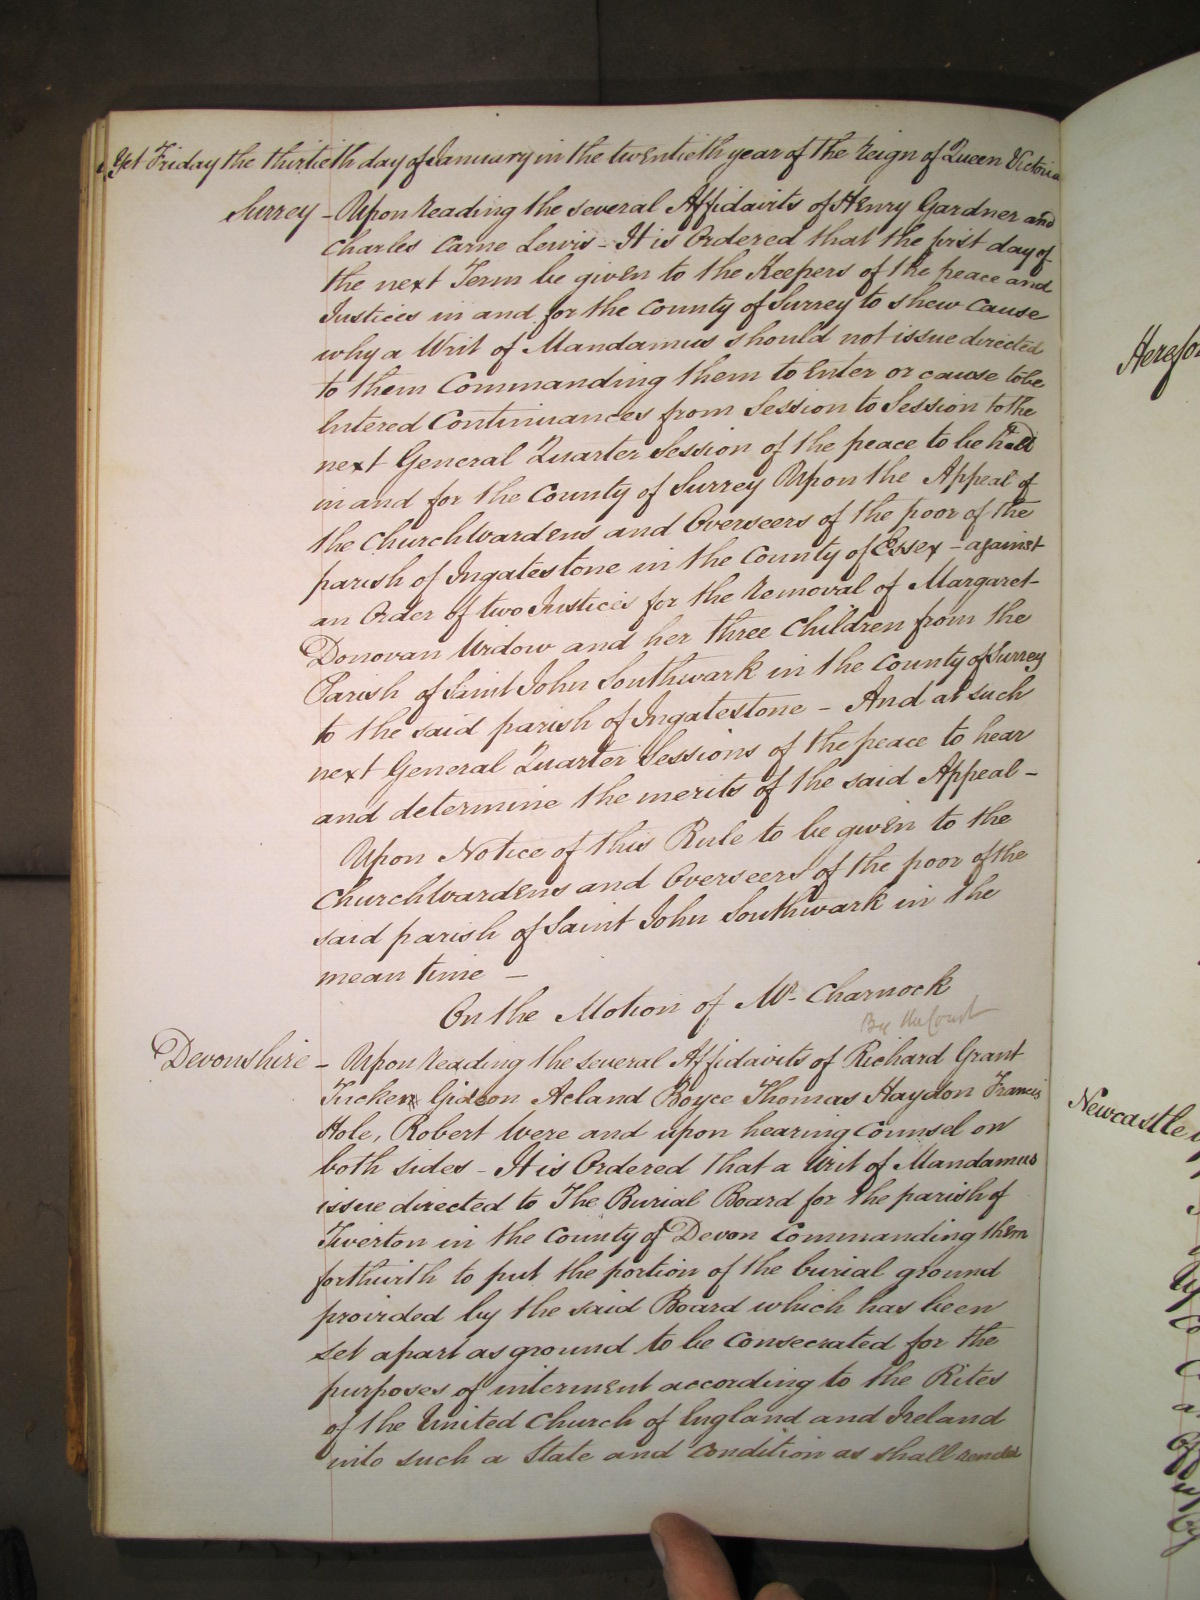 Yet Friday the thirtieth day of January in the twentieth year of the Reign of Queen Victoria
Surrey - Upon reading the several Affidavits of Henry Gardner and
Charles Carne Lewis - It is Ordered that the first day of
the next Term be given to the Keepers of the peace and
Justices in and for the County of Surrey to shew cause
why a Writ of Mandamus should not issue directed
to them Commanding them to Enter or cause to be
Entered Continuances from Session to Session to the
next General Quarter Session of the peace to be held
in and for the County of Surrey Upon the Appeal of
the Churchwardens and Overseers of the poor of the
parish of Ingatestone in the County of Essex - against
an Order of two Justices for the removal of Margaret
Donovan Widow and her three Children from the
Parish of Saint John Southwark in the County of Surrey
to the said parish of Ingatestone - And at such
next General Quarter Sessions of the peace to hear
and determine the merits of the said Appeal -
Upon Notice of this Rule to be given to the
Churchwardens and Overseers of the poor of the
said parish of Saint John Southwark in the
mean time -
On the Motion of Mr. Charnock
By the Court
Devonshire - Upon reading the several Affidavits of Richard Grant
Tucker Gideon Acland Boyce Thomas Haydon Francis
Hole, Robert Were and upon hearing Counsel on
both sides - It is Ordered that a Writ of Mandamus
issue directed to The Burial Board for the parish of
Tiverton in the County of Devon Commanding them
forthwith to put the portion of the burial ground
provided by the said Board which has been
set apart as ground to be Consecrated for the
purposes of interment according to the Rites
of the United Church of England and Ireland
into such a State and Condition as shall render
Newcastle